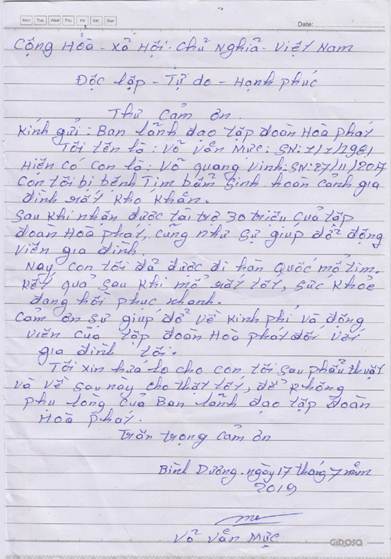 Mon Tue Wed Thu Fri Sat Sun Date:
Cộng Hoà - Xả Hội Chủ Nghĩa - Việt Nam
Độc lập - Tự do - Hạnh phúc
Thư Cảm ơn
Kính gửi: Ban Lảnh đạo tập đoàn Hoà phát
Tôi tên là: Vỏ Văn Mực: SN: 1/1/1981
Hiện có con là: Vỏ Quang Vinh: SN: 27/11/2017
Con tôi bị bệnh Tim bẩm Sinh hoàn cảnh gia
đình rất khó khăn.
Sau khi nhận được tài trợ 30 triệu của tập
đoàn Hoà phát, củng như sự giúp đở động
viên gia đình.
Nay con tôi đả được đi hàn Quốc mổ tim.
kết quả sau khi mổ rất tốt, sức khỏe
đang hồi phục nhanh.
Cảm ơn sự giúp đở về kinh phí và động
viên của tập đoàn Hoà phát đối với
gia đình tôi.
Tôi xin hứa lo cho con tôi sau phẩu thuật
và về sau này cho thật tốt, để không
phụ lòng của Ban lảnh đạo tập đoàn
Hoà phát.
Trân trọng cảm ơn
Bình Dương. ngày 17 tháng 7 năm
2019
Vỏ Văn Mực
GIDOSA